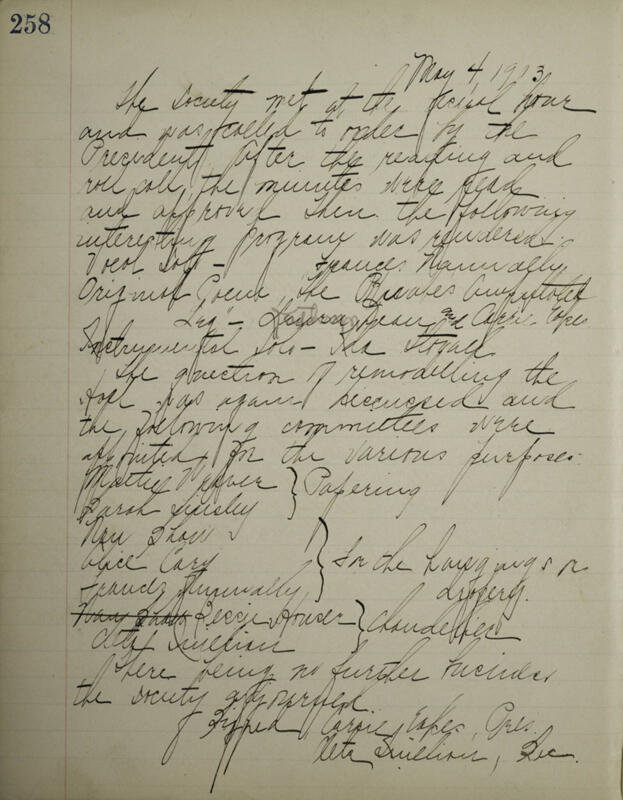 258
May 4, 1903
The Society met at the usual hour
and was called to order by the
President. After the reading and
roll call, the minutes were read
and approved. Then the following
interesting program was rendered.
Vocal Solo – Frances Nunnally
Original Poem The Private's
Leg" – Dean and Carrie Eakes
Instrumental Solo – Ina
The question of remodelling the
Hall was again discussed and
the following committees were
appointed for the various purposes:
Mattie Weaver } Papering
Sarah
Nan Shaw
Alice Cary } for the hangings or
Frances Nunnally drapery.
Nan Shaw Bessie Houser } Chandelier
Neta Smillion
There being no further business
the society adjourned.
Signed Carrie Eakes, Pres.
Neta Smillion, Sec.